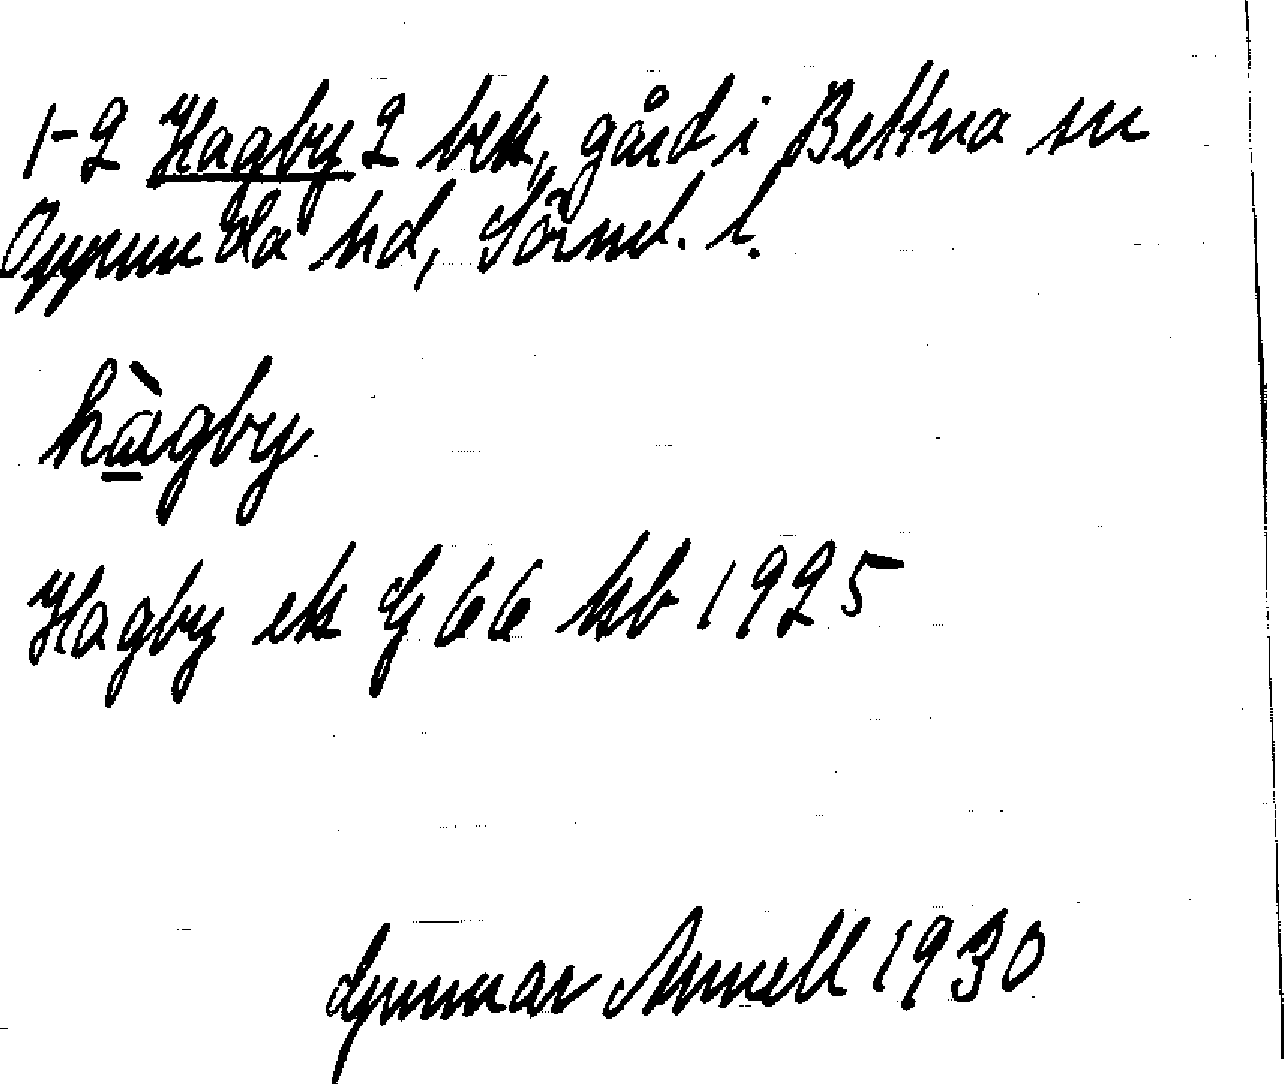 1-2 Hagby 2 bek, gård i Bettna sn
Oppunda hd, Sörml. l.
hàgby
Hagby ek G 66 kb 1925
Gunnar Arnell 1930